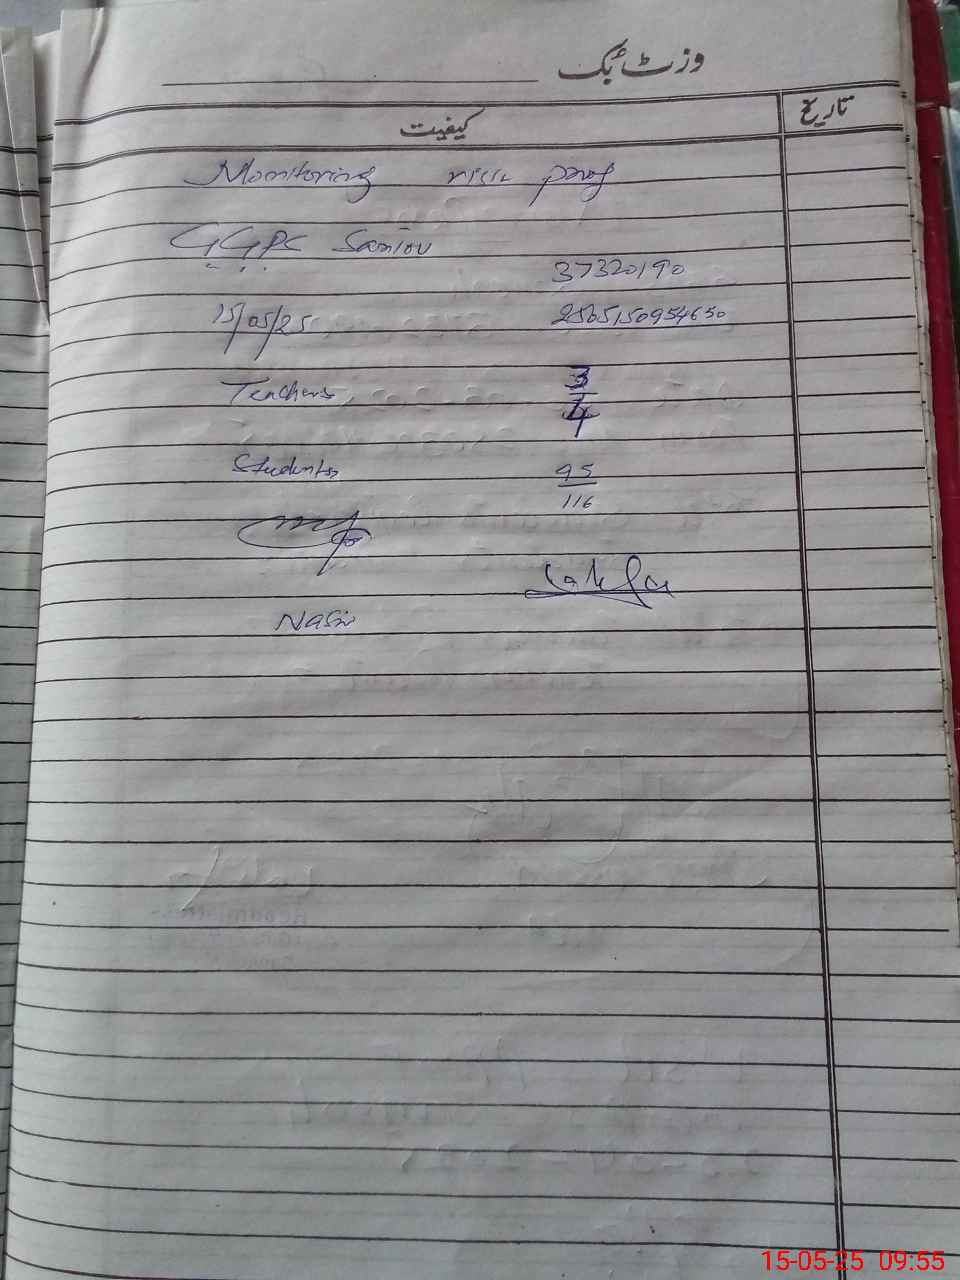 وزٹ بک
کیفیت تاریخ
Monitoring visit proof
GGPC
37320190
15/05/25 2505150954650
Teachers 3/4
Students 95/116
Nasir
15-05-25 09:55